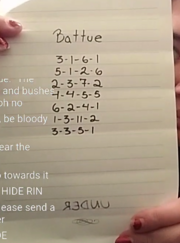 Battue
3-1-6-1
5-1-2-6
2-3-7-2
4-4-5-5
6-2-4-1
1-3-11-2
3-3-5-1
and bushe
oh no
be bloody
ear the
towards it
HIDE RIN
ease send a
UNDER